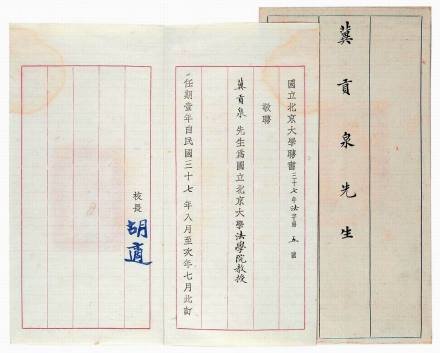 冀貢泉先生
國立北京大學聘書三十七年法字第五號
敬聘
冀貢泉先生爲國立北京大學法學院教授
任期壹年自民國三十七年八月至次年七月此訂
校長
胡適